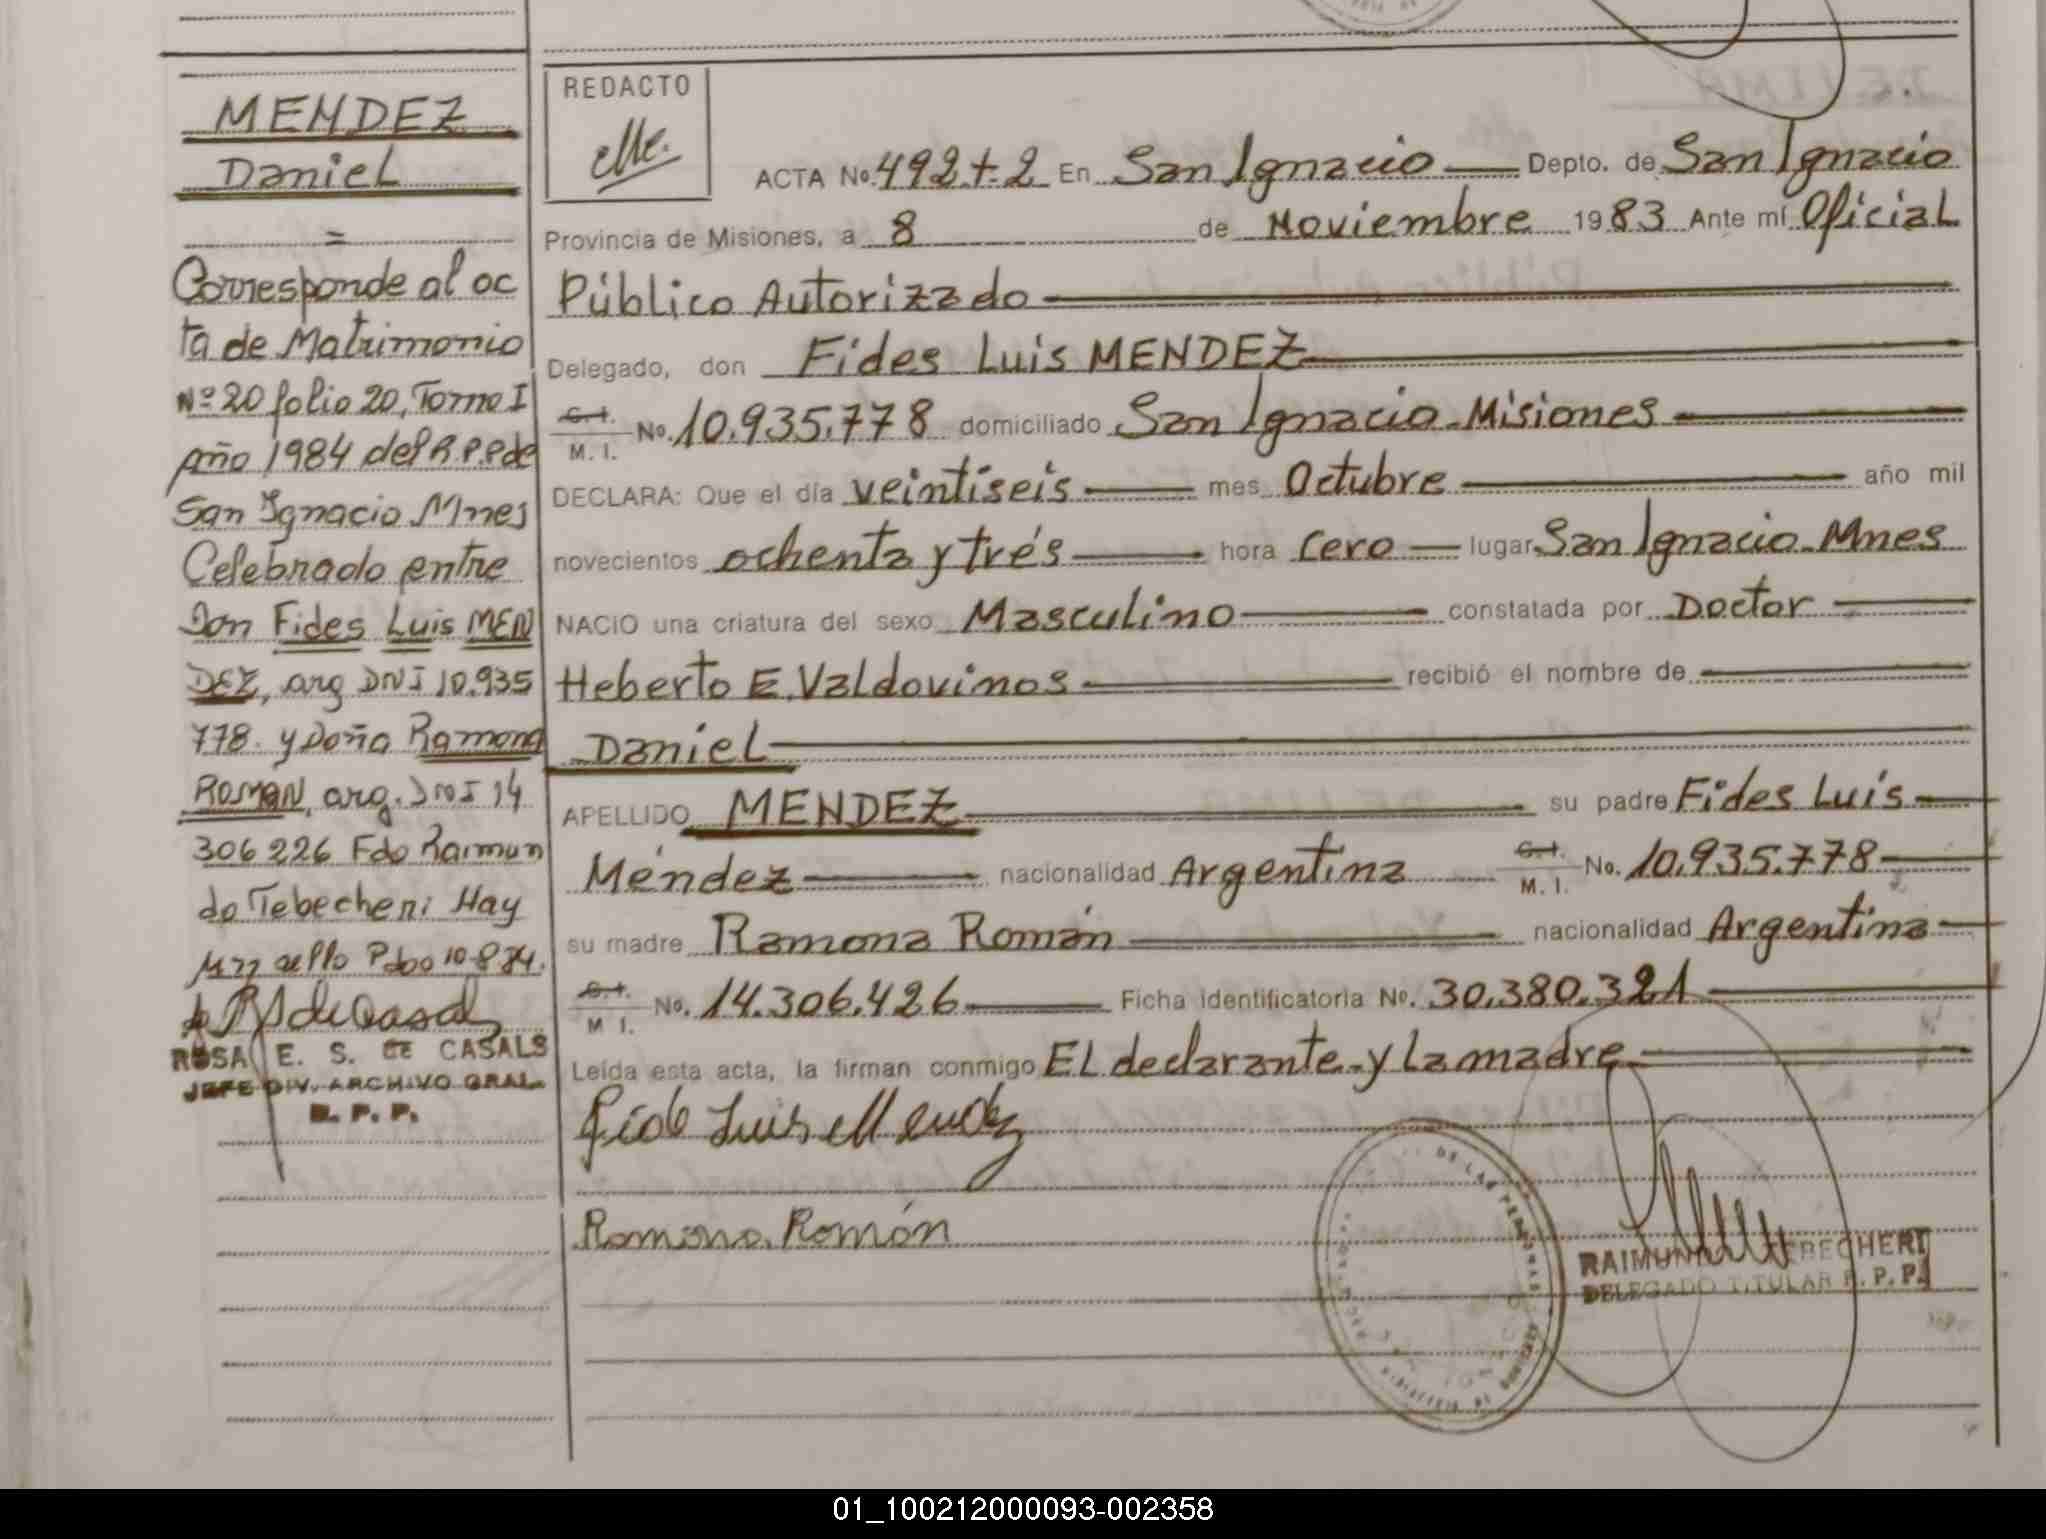 MENDEZ
Daniel
=
Corresponde al ac
ta de Matrimonio
Nº 20 folio 20, Tomo I
Año 1984 del R.P.P de
San Ignacio Mnes
Celebrado entre
Don Fides Luis MEN
DEZ, arg DNI 10.935
778. y Doña Ramona
ROMAN, arg. DNI 14
306 226 Fdo Raimun
do Tebecheri Hay
un sello Pdas 10-8-84.
ROSA E. S. de CASALS
JEFE DIV. ARCHIVO GRAL.
R. P. P.
REDACTO
ACTA No. 492 t. 2 En San Ignacio Depto. de San Ignacio
Provincia de Misiones, a 8 de Noviembre 1983 Ante mí Oficial
Público Autorizado
Delegado, don Fides Luis MENDEZ
C.I. M. I. No. 10.935.778 domiciliado San Ignacio-Misiones
DECLARA: Que el día veintiseis mes Octubre año mil
novecientos ochenta y trés hora Cero lugar San Ignacio-Mnes
NACIO una criatura del sexo Masculino constatada por Doctor
Heberto E. Valdovinos recibió el nombre de
Daniel
APELLIDO MENDEZ su padre Fides Luis
Méndez nacionalidad Argentina C.I. M. I. No. 10.935.778
su madre Ramona Román nacionalidad Argentina
C.I. M I. No. 14.306.426 Ficha identificatoria No. 30.380.321
Leída esta acta, la firman conmigo El declarante-y La madre
Fide Luis Mendez
Ramona Román
DE LAS PERSONAS
RAIMUNDO TEBECHERI
DELEGADO TITULAR R. P. P.
01_100212000093-002358